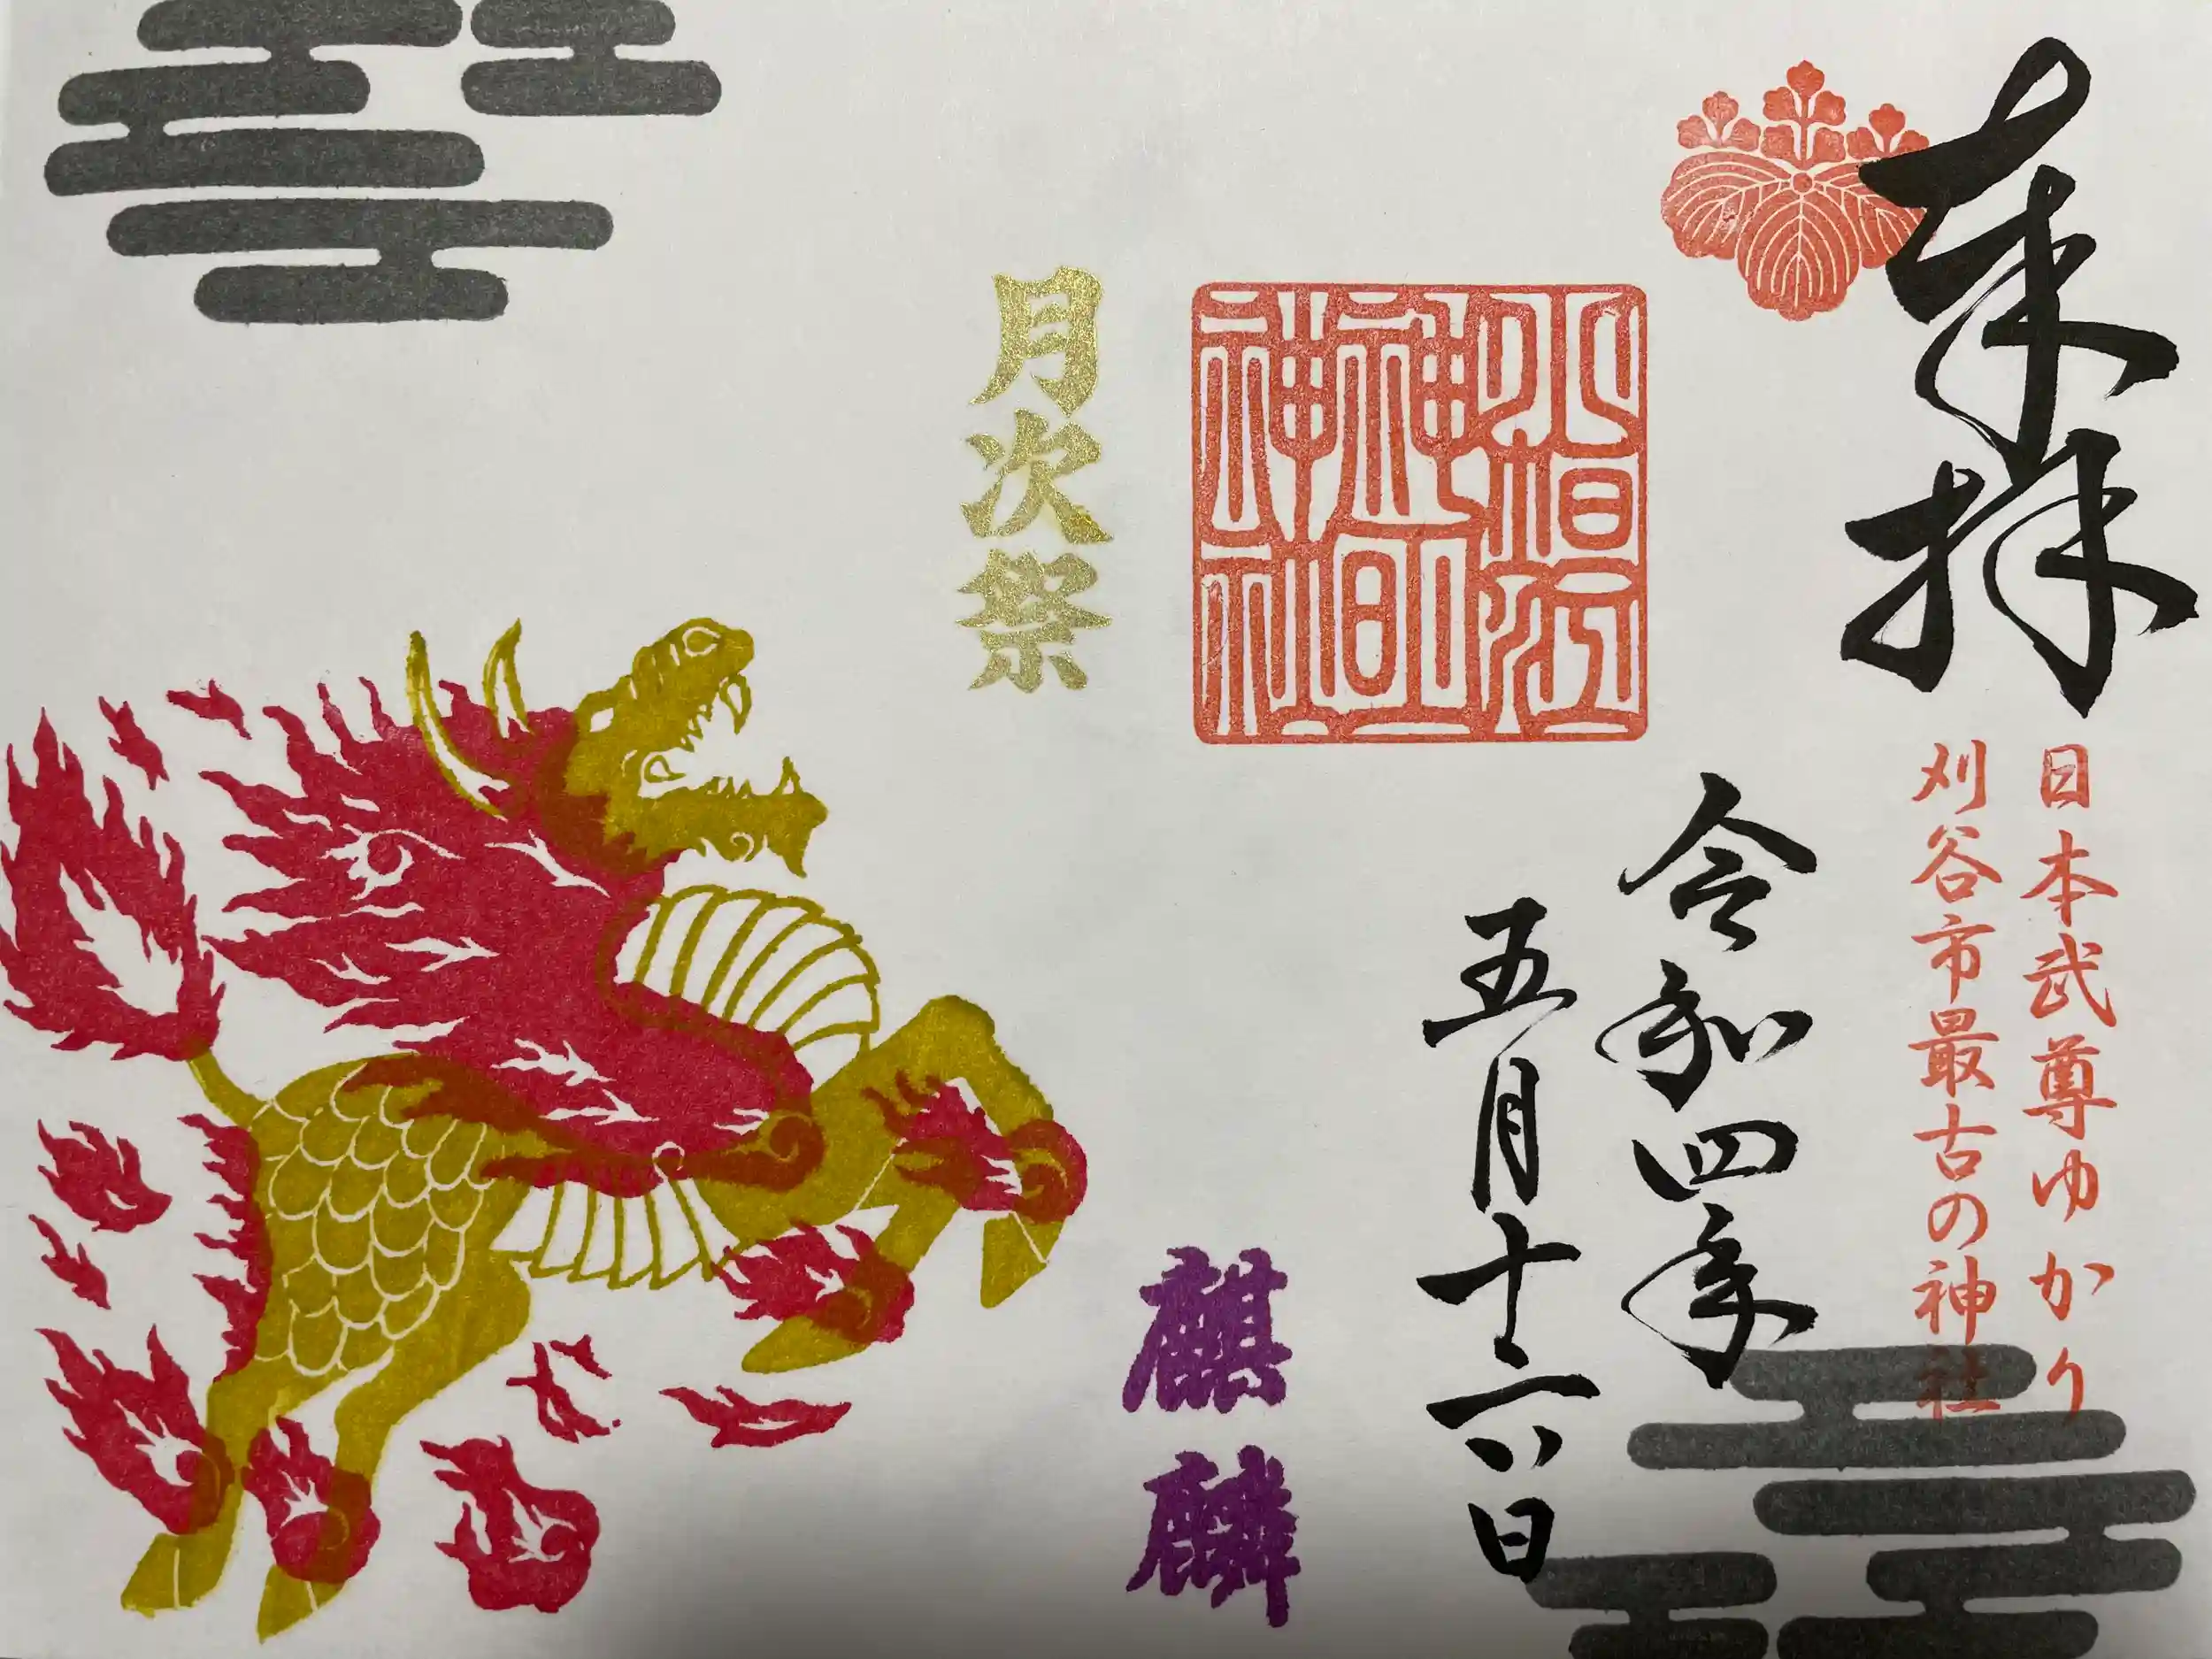 奉拝
日本武尊ゆかり
刈谷市最古の神社
令和四年
五月十六日
月次祭
麒麟